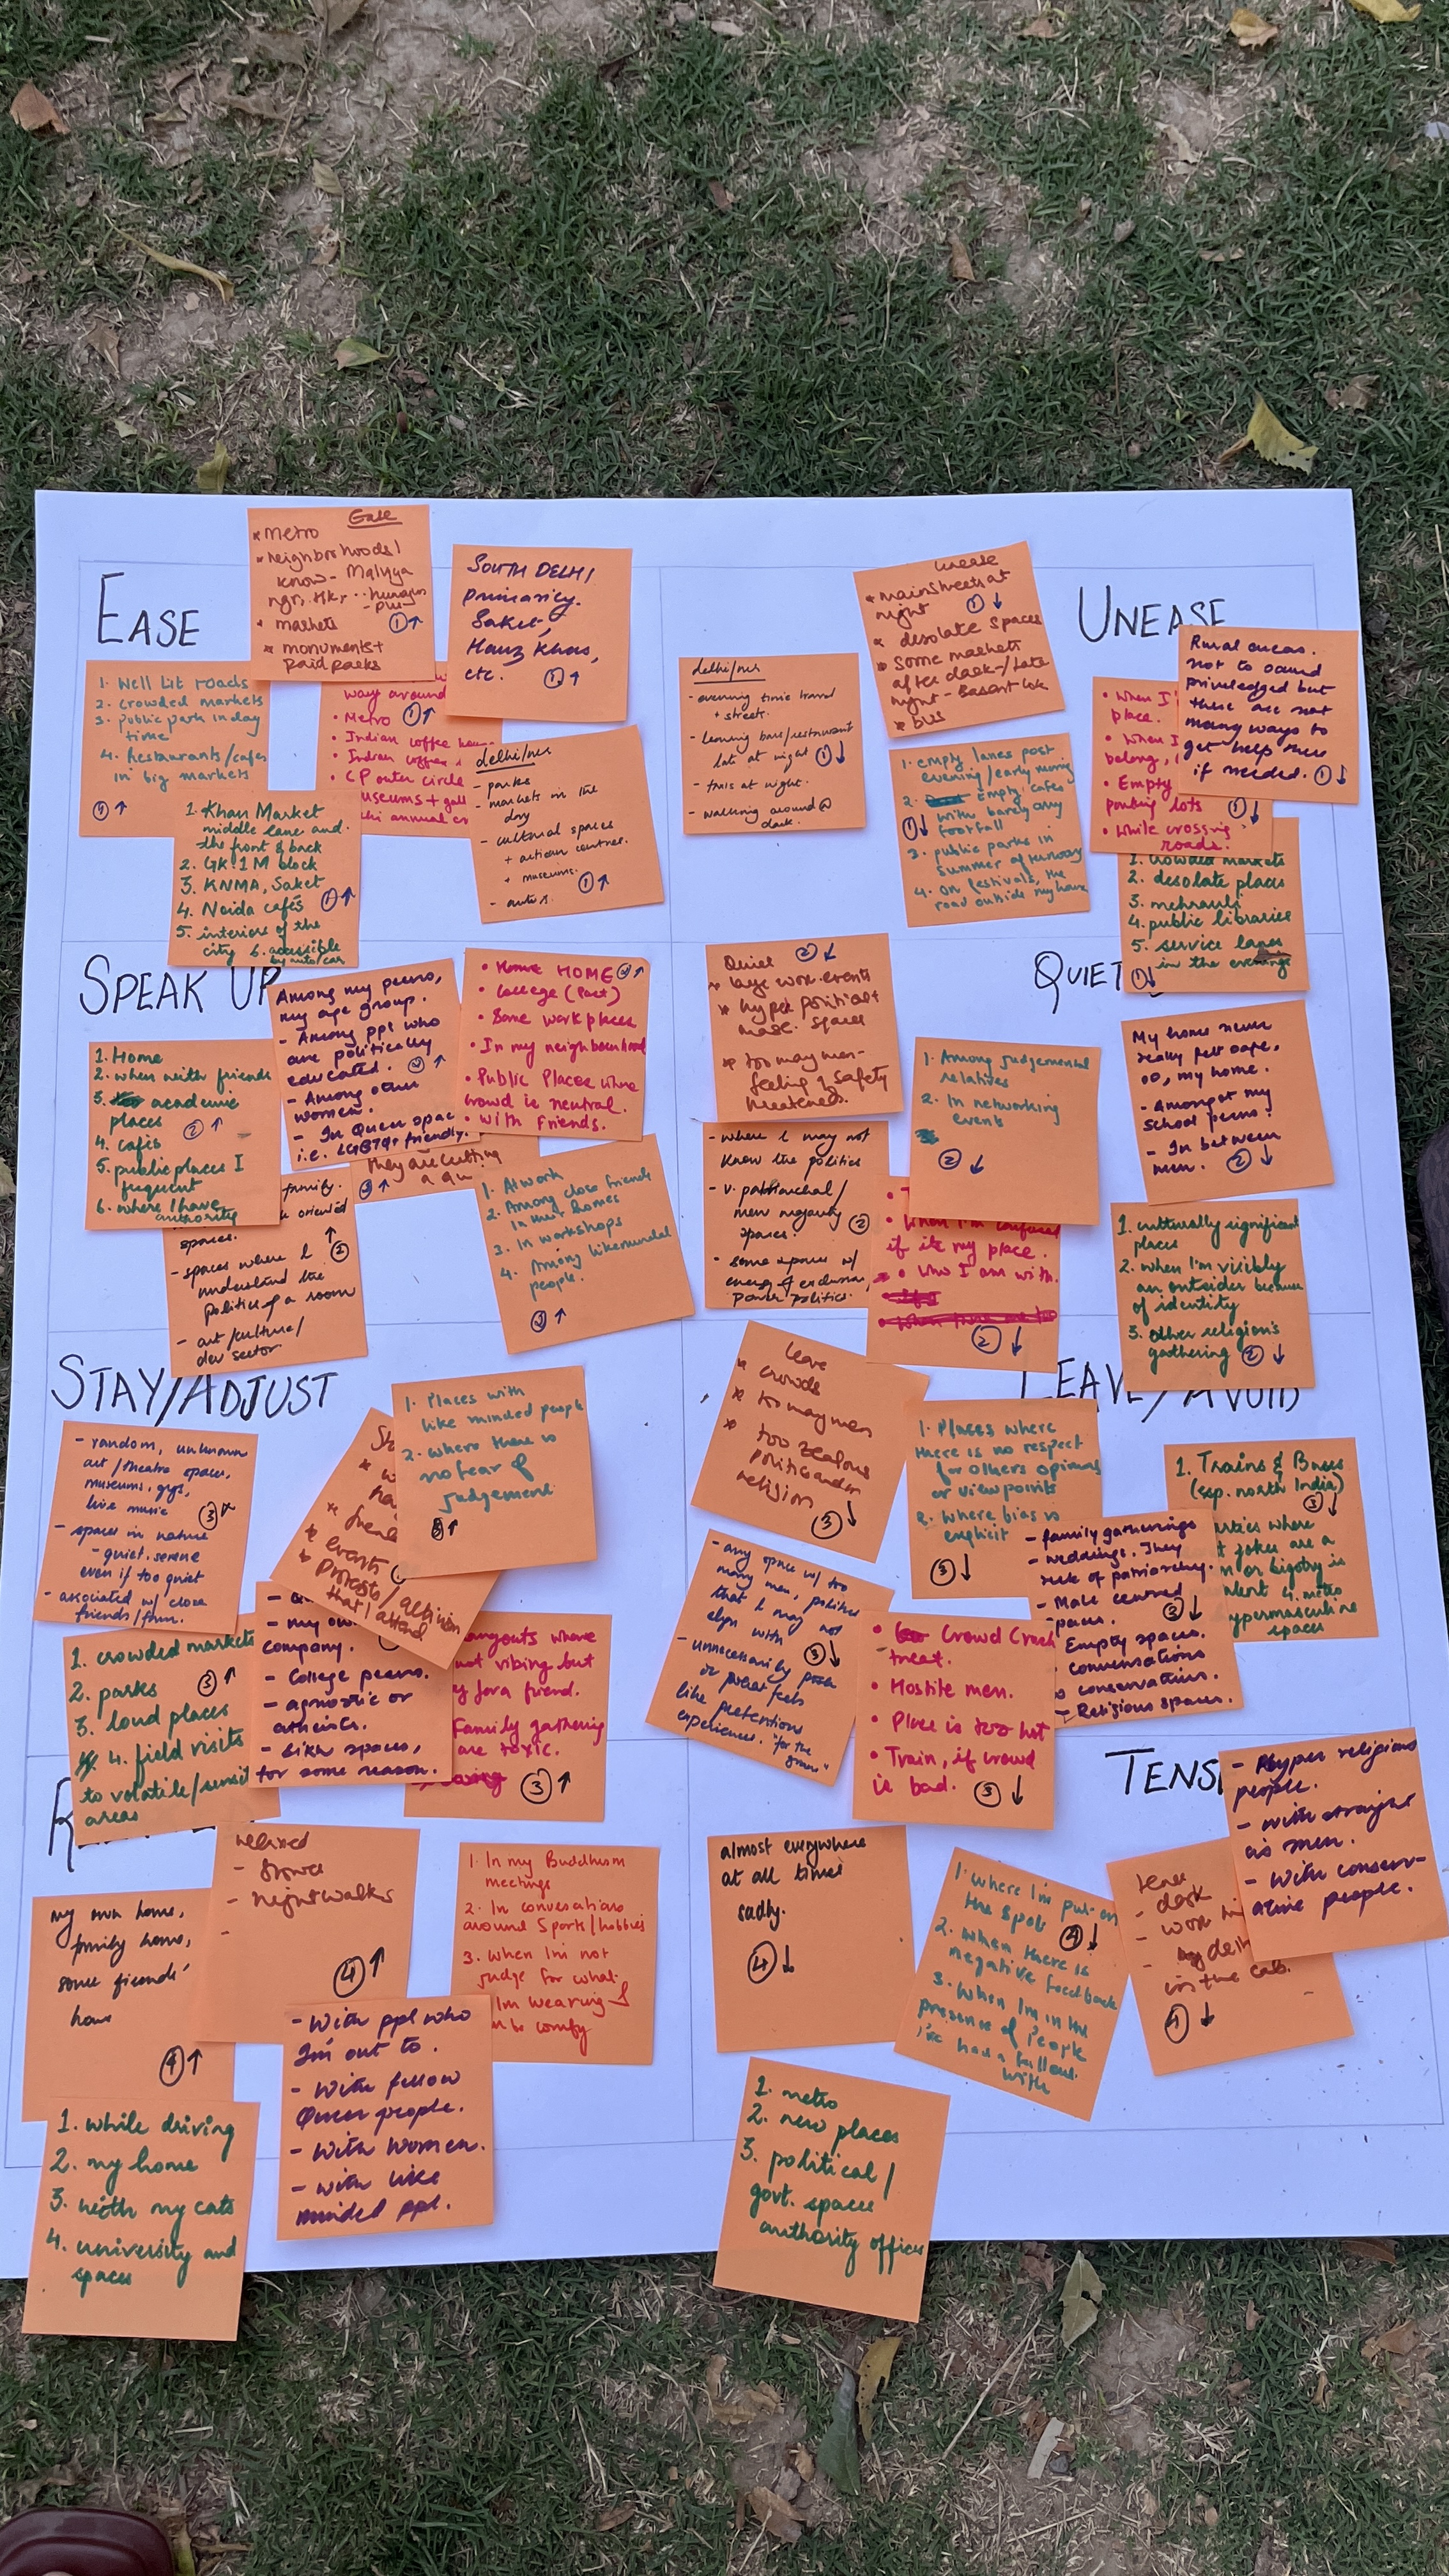 EASE
Ease
* Metro
* neighborhoods I
know - Malviya
ngr, HK,
* markets
* monuments +
paid parks
①↑
SOUTH DELHI
primarily.
Saket,
Hauz Khas,
etc. ①↑
1. Well lit roads
2. crowded markets
3. public park in day
time
4. Restaurants/cafes
in big markets
①↑
way around
• Metro ①↑
• Indian coffee
• Indian
• CP outer circle
useums +
annual
delhi/ncr
- parks
- markets in the
day
- cultural spaces
+ action centres.
+ museums.
①↑
- autos.
1. Khan Market
middle lane and
the front & back
2. GK 1 M block
3. KNMA, Saket
4. Noida cafés ①↑
5. interiors of the
city 6. accessible
by auto/car
UNEASE
delhi/ncr
- evening time travel
+ streets.
- leaving bars/restaurant
late at night ①↓
- at night.
- walking around @
dark.
unease
* mainstreets at
night ①↓
* desolate spaces
* Some markets
after dark / late
night -
* bus
Rural areas.
not to sound
priviledged but
there are not
many ways to
get help there
if needed. ①↓
• When I'
place.
• When I
belong,
• Empty
parking lots
①↓
• While crossing
roads.
1. empty lanes post
evening/early morning
2. Empty cafes
with barely any
footfall
①↓
3. public parks in
summer afternoon
4. On festivals, the
road outside my house
1. crowded markets
2. desolate places
3. mehrauli
4. public libraries
5. service lanes
in the evening
①↓
SPEAK UP
Among my peers,
my age group.
- Among ppl who
are politically
educated. ②↑
- Among other
women.
- In Queer spac
i.e. LGBTQ+ friendly.
• HOME ②↑
• College (Past)
• Some workplaces
• In my neighbourhood
• Public Places where
crowd is neutral.
• With friends.
1. Home
2. when with friends
3. academic
places
4. cafés ②↑
5. public places I
frequent
6. where I have
authority
family.
oriented
spaces.
- spaces where I ↑②
understand the
politics of a room
- art/culture/
dev sector
they are cutting
②↑
1. At work
2. Among close friends
in homes
3. In workshops
4. Among likeminded
people.
②↑
QUIET
Quiet ②↓
* large work events
* hyper political +
masc. spaces
* too many men -
feeling of safety
threatened.
1. Among judgemental
relatives
2. In networking
events
②↓
My home never
really felt safe,
so, my home.
- Amongst my
school peers.
- In between
men. ②↓
- where I may not
know the politics
- v. patriarchal/
men majority
spaces. ②
- some spaces w/
energy of exclusion
power politics.
When I'm confused
if its my place.
• Who I am with.
②↓
1. culturally significant
places
2. when I'm visibly
an outsider because
of identity
3. other religion's
gathering ②↓
STAY/ADJUST
- random, unknown
art/theatre spaces,
museums, gigs,
live music ③↑
- spaces in nature
- quiet, serene
even if too quiet
- associated w/ close
friends/fam.
* events
* protests/
that I attend
1. Places with
like minded people
2. where there is
no fear of
judgement
③↑
1. crowded markets
2. parks ③↑
3. loud places
4. field visits
to volatile/sensit
areas
- my own
company.
- College peers.
- agnostic or
atheists.
- Sikh spaces,
for some reason.
hangouts where
not vibing but
for a friend.
Family gathering
are toxic.
③↑
LEAVE/AVOID
leave
* crowds
* too many men
* too zealous
politics and/or
religion ③↓
1. Places where
there is no respect
for others opinions
or viewpoints
2. where bias is
explicit
③↓
1. Trains & Buses
(esp. north India)
③↓
arties where
jokes are a
or bigotry is
4. metro
ypermasculine
spaces
- family gatherings
- weddings. They
reek of patriarchy.
- Male centred
spaces. ③↓
Empty spaces.
conversations
conservatism.
- Religious spaces.
- any space w/ too
many men, politics
that I may not
align with
③↓
- unnecessarily posh
or that feels
like pretentious
experiences. "for the
gram"
• Crowd Crush
treat.
• Hostile men.
• Place is too hot
• Train, if crowd
is bad. ③↓
R
relaxed
- night walks
④↑
my own home,
family home,
some friends'
home
④↑
1. In my Buddhism
meetings
2. In conversations
around Sports/hobbies
3. when I'm not
judge for what
I'm wearing &
be comfy
- With ppl who
I'm out to.
- With fellow
Queer people.
- With Women.
- with like
minded ppl.
1. while driving
2. my home
3. with my cats
4. university and
spaces
TENS
almost everywhere
at all times
sadly.
④↓
1. where I'm put on
the spot ④↓
2. when there is
negative feedback
3. when I'm in the
presence of people
I've had a fallout
with
tense
- dark
- work
in the cab.
④↓
- Hyper religious
people.
- with straight
cis men.
- With conserv-
ative people.
1. metro
2. new places
3. political/
govt. spaces
authority offices